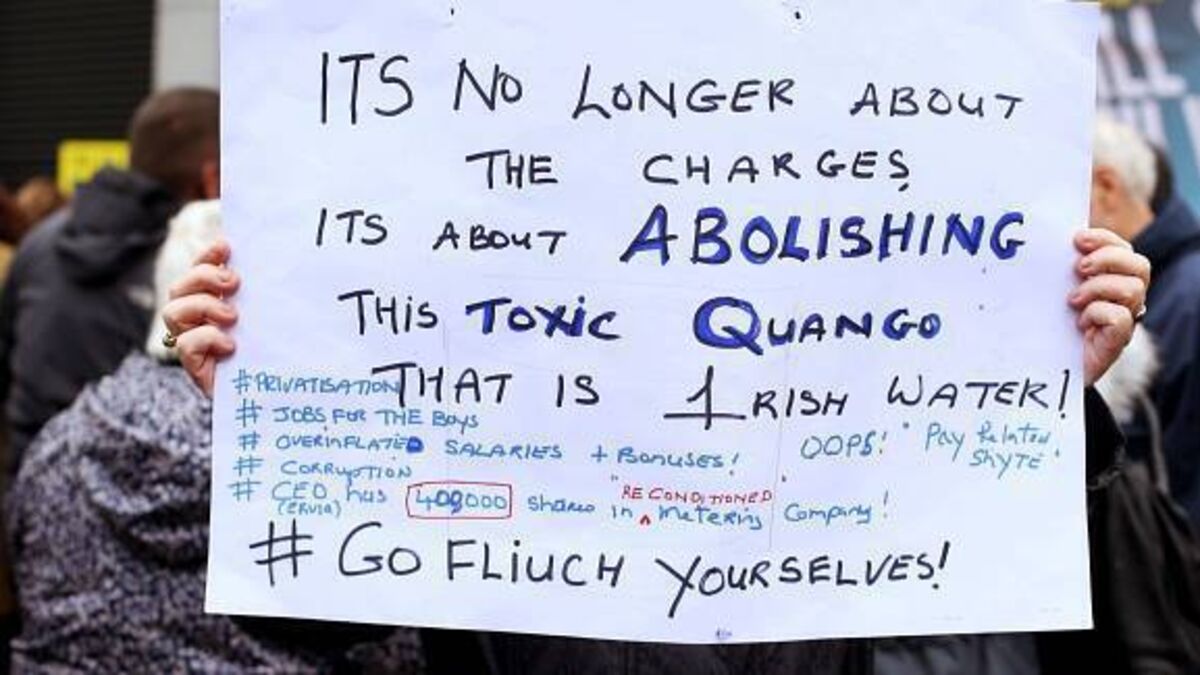 ITS NO LONGER ABOUT
THE CHARGES
ITS ABOUT ABOLISHING
THIS TOXIC QUANGO
THAT IS IRISH WATER!
#PRIVATISATION
# JOBS FOR THE BOYS
# OVERINFLATED SALARIES + BONUSES!
OOPS! "Pay Related
Shyte"
# CORRUPTION
# CEO has 400000 shares in "RECONDITIONED" metering Company!
(ERVIA)
# GO FLIUCH YOURSELVES!